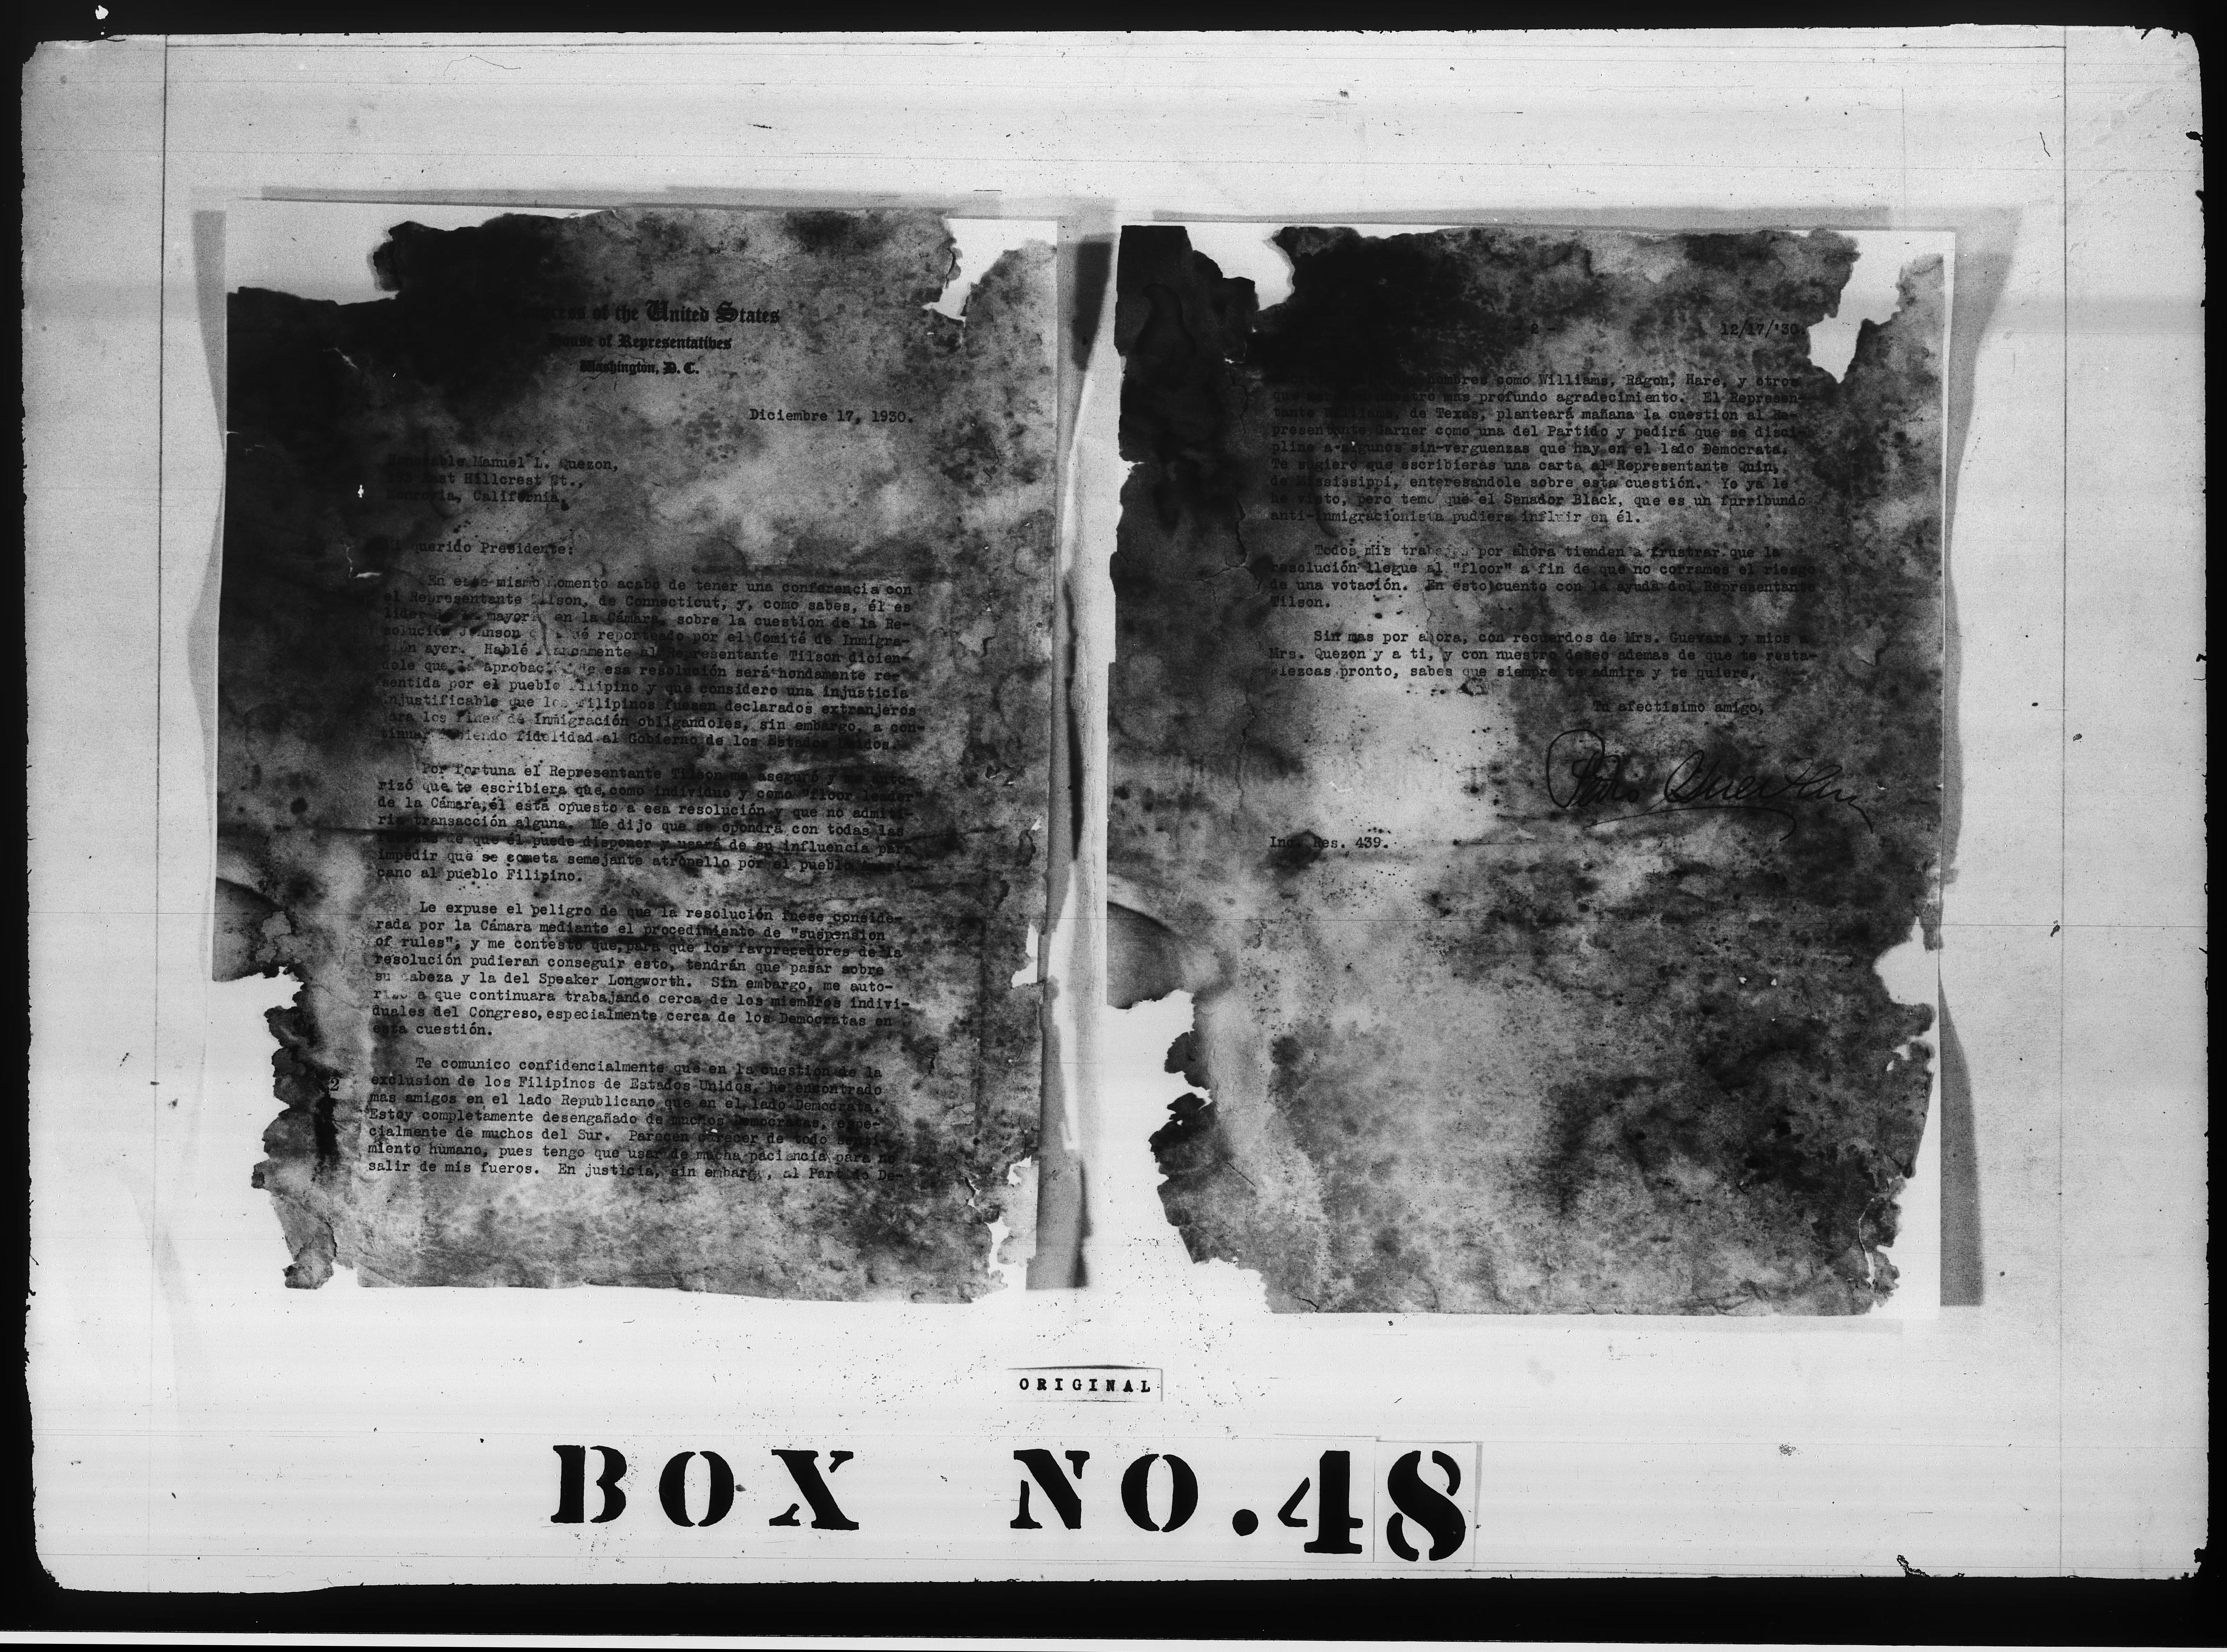 Congress of the United States
House of Representatives
Washington, D. C.
Diciembre 17, 1930.
Honorable Manuel L. Quezon,
East Hillcrest St.,
Monrovia, California.
querido Presidente:
En este mismo momento acabo de tener una conferencia con
el Representante Tilson, de Connecticut, y, como sabes, él es
lider mayor en la Cámara, sobre la cuestion de la Re-
solución Johnson reporteado por el Comité de Inmigra-
ción ayer. Hablé francamente al Representante Tilson dicien-
dole que la aprobación de esa resolución será hondamente re-
sentida por el pueblo Filipino y que considero una injusticia
injustificable que los Filipinos fuesen declarados extranjeros
para los fines de Inmigración obligandoles, sin embargo, a con-
tinuar debiendo fidelidad al Gobierno de los Estados Unidos.
Por fortuna el Representante Tilson me aseguró y me auto-
rizó que te escribiera que, como individuo y como "floor leader"
de la Cámara, él está opuesto a esa resolución y que no admiti-
ria transacción alguna. Me dijo que se opondrá con todas las
de que él puede disponer y usará de su influencia para
impedir que se cometa semejante atropello por el pueblo Ameri-
cano al pueblo Filipino.
Le expuse el peligro de que la resolución fuese conside-
rada por la Cámara mediante el procedimiento de "suspension
of rules", y me contestó que, para que los favorecedores de la
resolución pudieran conseguir esto, tendrán que pasar sobre
su cabeza y la del Speaker Longworth. Sin embargo, me auto-
rizó a que continuara trabajando cerca de los miembros indivi-
duales del Congreso, especialmente cerca de los Democratas en
esta cuestión.
Te comunico confidencialmente que en la cuestion de la
exclusion de los Filipinos de Estados Unidos, he encontrado
mas amigos en el lado Republicano que en el lado Democrata.
Estoy completamente desengañado de muchos Democratas, espe-
cialmente de muchos del Sur. Parecen carecer de todo senti-
miento humano, pues tengo que usar de mucha paciencia para no
salir de mis fueros. En justicia, sin embargo, al Partido De-
2
- 2 -
12/17/'30.
hombres como Williams, Ragon, Hare, y otros
que nuestro mas profundo agradecimiento. El Represen-
tante Williams, de Texas, planteará mañana la cuestion al Re-
presentante Garner como una del Partido y pedirá que se disci-
pline a algunos sin-verguenzas que hay en el lado Democrata.
Te sugiero que escribieras una carta al Representante Quin,
de Mississippi, enteresandole sobre esta cuestión. Yo ya le
he visto, pero temo que el Senador Black, que es un furribundo
anti-inmigracionista pudiera influir en él.
Todos mis trabajos por ahora tienden a frustrar que la
resolución llegue al "floor" a fin de que no corramos el riesgo
de una votación. En esto cuento con la ayuda del Representante
Tilson.
Sin mas por ahora, con recuerdos de Mrs. Guevara y mios a
Mrs. Quezon y a ti, y con nuestro deseo ademas de que te resta-
blezcas pronto, sabes que siempre te admira y te quiere,
Tu afectisimo amigo,
Pedro Guevara
Inc. Res. 439.
ORIGINAL
BOX NO. 48